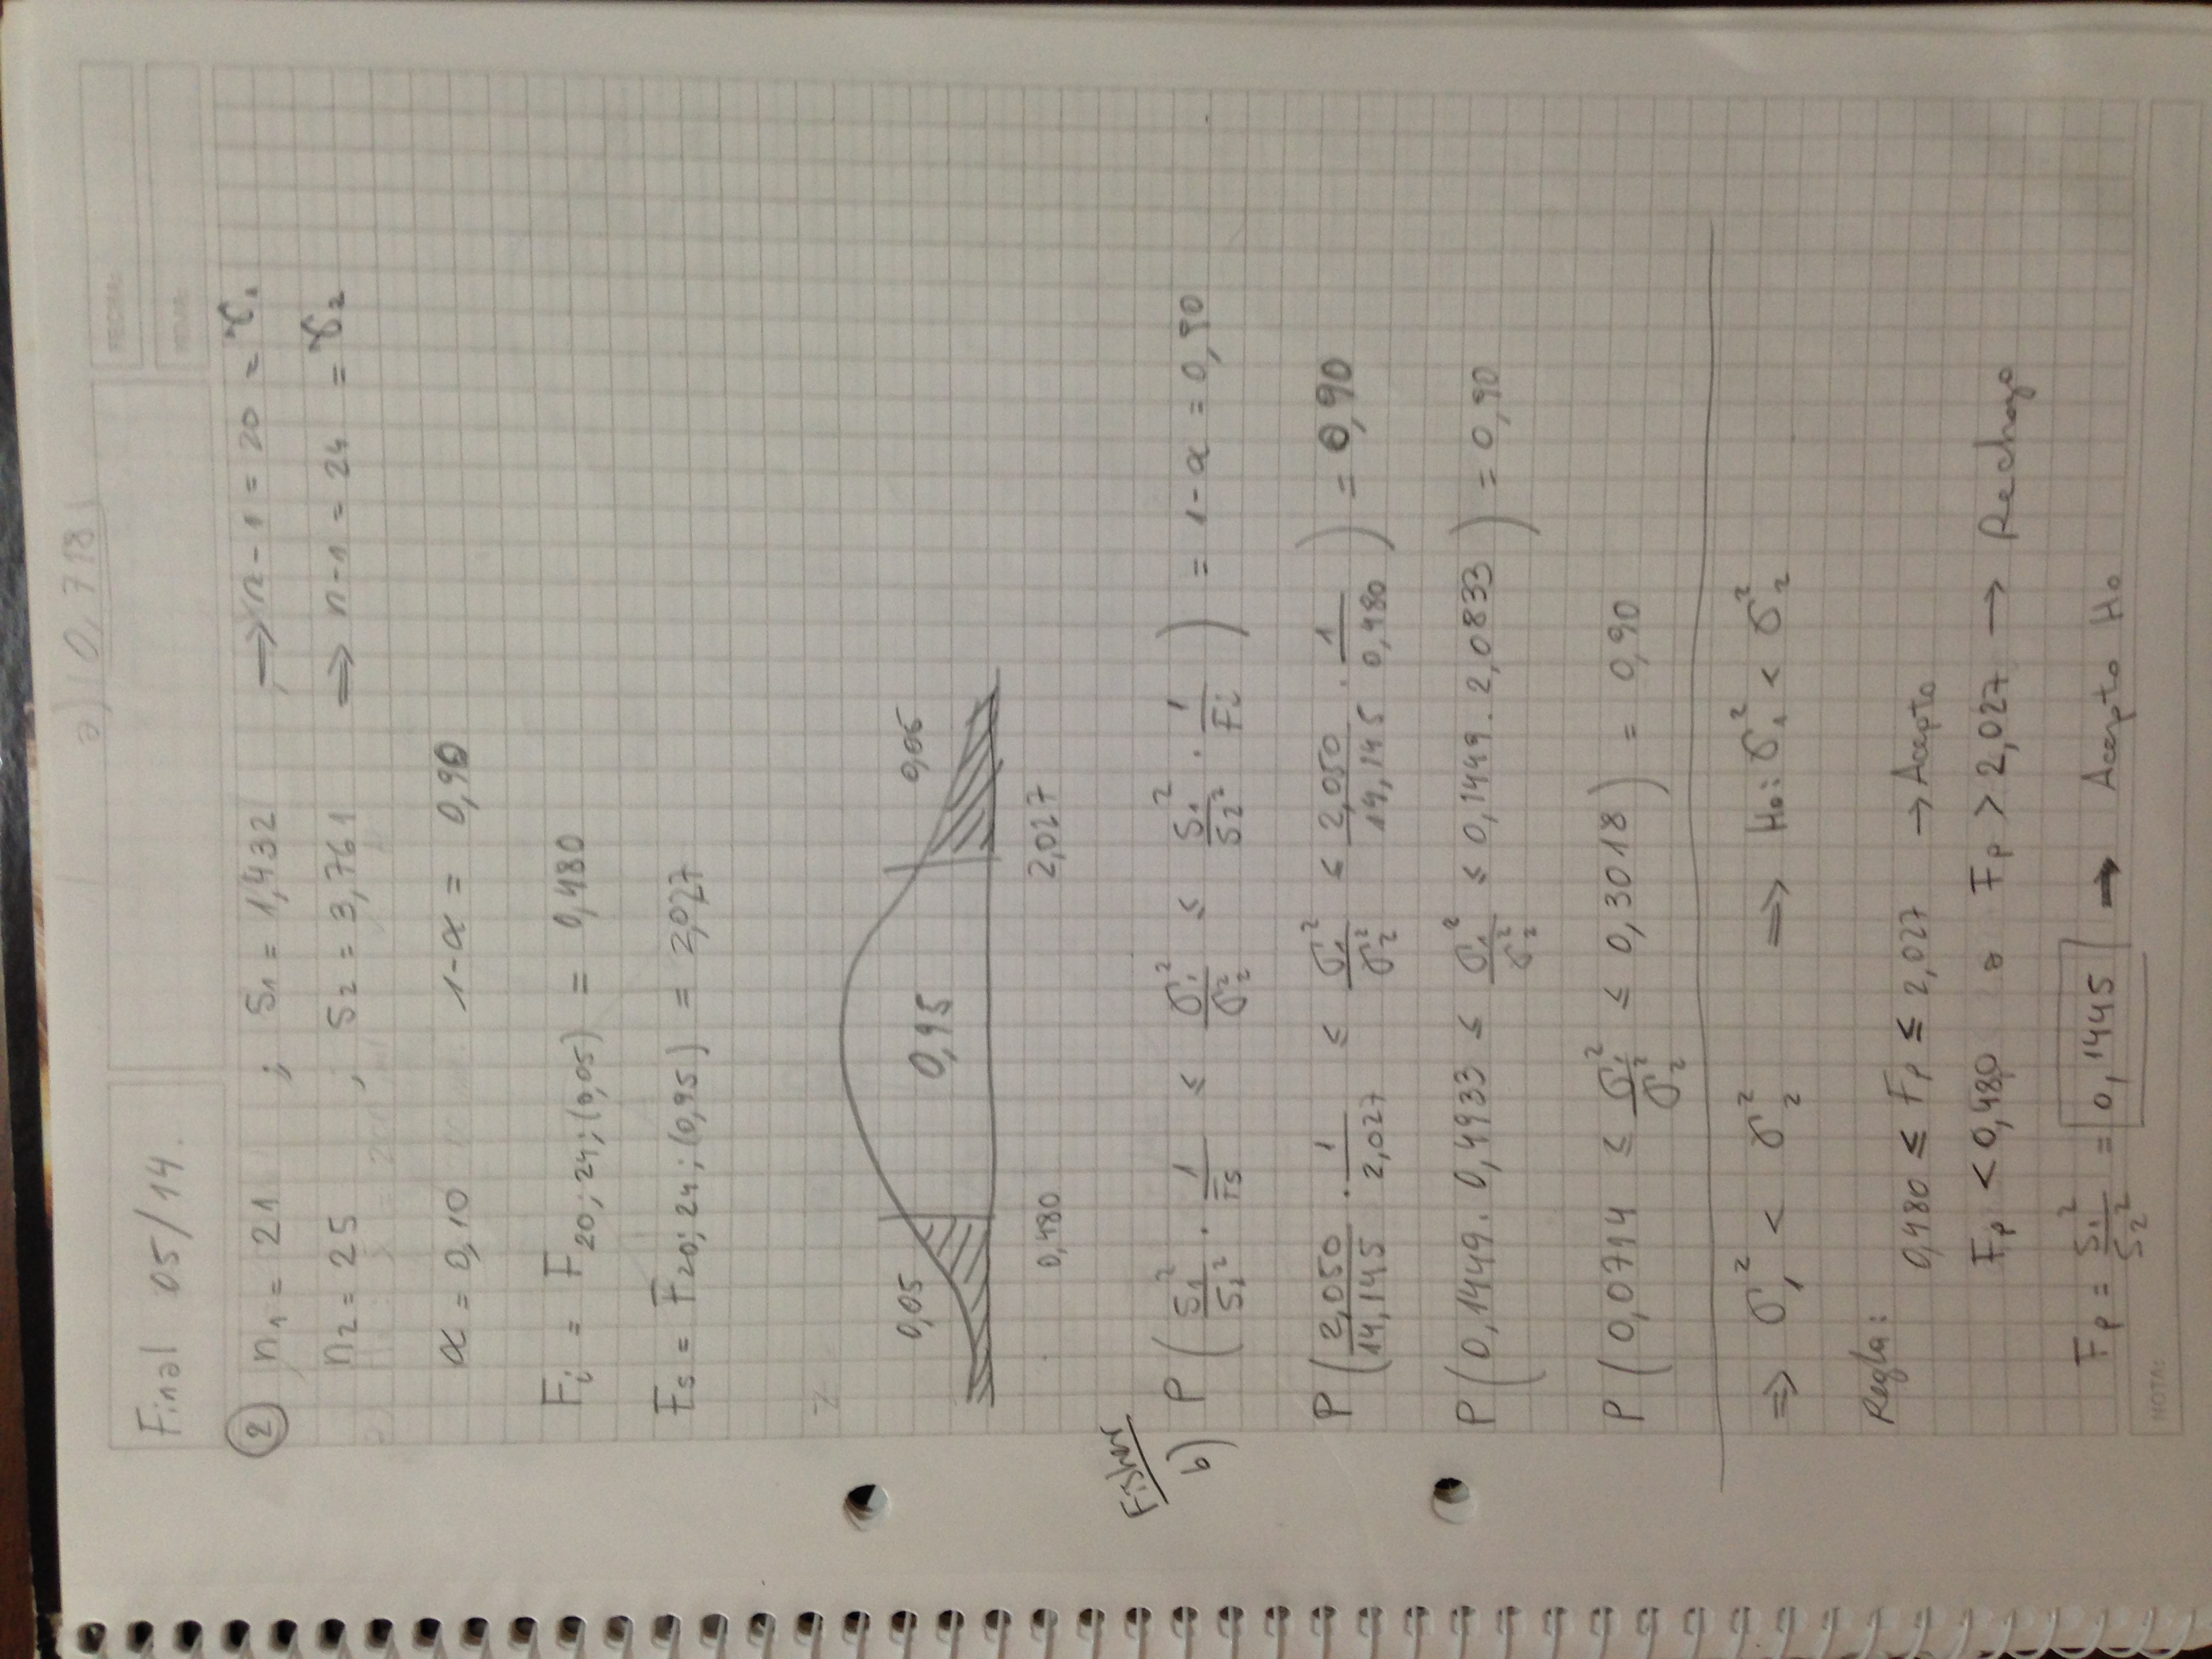 a) 0,718
FECHA:
HOJA:
Final 05/14.
② n₁ = 21 ; S₁ = 1,432 ⟹ n-1 = 20 = γ₁
n₂ = 25 ; S₂ = 3,761 ⟹ n-1 = 24 = γ₂
α = 0,10 1-α = 0,90
Fi = F20;24;(0,05) = 0,480
Fs = F20;24;(0,95) = 2,027
Z
0,05 0,95 0,05
0,480 2,027
Fisher
b) P ( S₁²/S₂² . 1/Fs ≤ σ₁²/σ₂² ≤ S₁²/S₂² . 1/Fi ) = 1-α = 0,90
P ( 2,050/14,145 . 1/2,027 ≤ σ₁²/σ₂² ≤ 2,050/14,145 . 1/0,480 ) = 0,90
P ( 0,1449 . 0,4933 ≤ σ₁²/σ₂² ≤ 0,1449 . 2,0833 ) = 0,90
P ( 0,0714 ≤ σ₁²/σ₂² ≤ 0,3018 ) = 0,90
⟹ σ₁² < σ₂² ⟹ Ho: σ₁² < σ₂²
Regla:
0,480 ≤ Fp ≤ 2,027 → Acepto
Fp < 0,480 o Fp > 2,027 → Rechazo
Fp = S₁²/S₂² = 0,1445 → Acepto Ho
NOTA: